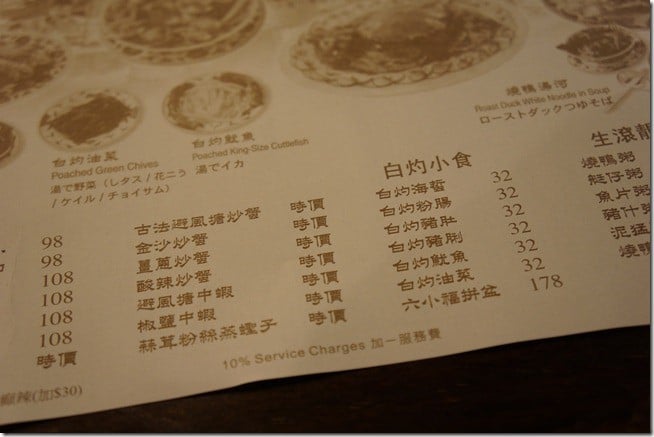 燒鴨湯河
Roast Duck White Noodle in Soup
ローストダックつゆそば
白灼油菜
Poached Green Chives
湯で野菜 (しタス / 花ニラ
/ ケイル / チョイサム)
白灼魷魚
Poached King-Size Cuttlefish
湯でイカ
98
98
108
108
108
108
時價
古法避風塘炒蟹 時價
金沙炒蟹 時價
薑蔥炒蟹 時價
酸辣炒蟹 時價
避風塘中蝦 時價
椒鹽中蝦 時價
蒜茸粉絲蒸蟶子 時價
白灼小食
白灼海蜇 32
白灼粉腸 32
白灼豬肚 32
白灼豬脷 32
白灼魷魚 32
白灼油菜 32
六小福拼盆 178
生滾靚
燒鴨粥
艇仔粥
魚片粥
豬什粥
泥鯭
燒鴨
10% Service Charges 加一服務費
辣(加$30)